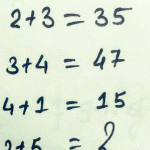 2+3 = 35
3+4 = 47
4+1 = 15
2+5 = 2